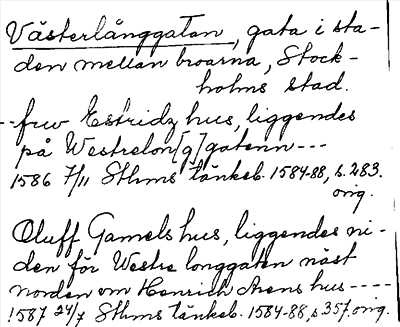 Västerlånggatan, gata i sta-
den mellan broarna, Stock-
holms stad.
--frw Estridz hus, liggendes
på Westrelon[g]gatenn---
1586 7/11 Sthms tänkeb. 1584-88, s. 283.
orig.
Oluff Gamels hus, liggendes ni-
den för Westre longgaten näst
norden om Henrich Arens hus----
1587 24/7 Sthms tänkeb. 1584-88, s 357, orig.